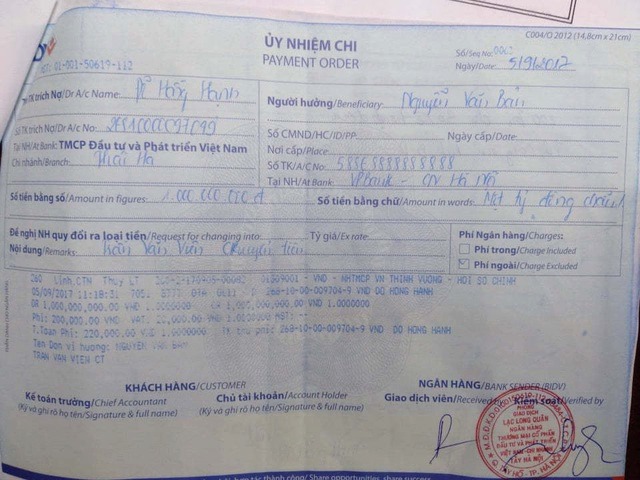 C004/O 2012 (14,8cm x 21cm)
ỦY NHIỆM CHI
PAYMENT ORDER
Số/Seq No:
Ngày/Date: 5/9/2017
MST: 01-001-50619-112
TK trích Nợ/Dr A/c Name: Đỗ Hồng Hạnh
Số TK trích Nợ/Dr A/c No:
Tại NH/At Bank: TMCP Đầu tư và Phát triển Việt Nam
Chi nhánh/Branch: Thái Hà
Người hưởng/Beneficiary: Nguyễn Văn Bản
Số CMND/HC/ID/PP: Ngày cấp/Date:
Nơi cấp/Place:
Số TK/A/C No:
Tại NH/At Bank: VPBank - CN Hà Nội
Số tiền bằng số/Amount in figures: 1.000.000.000 đ
Số tiền bằng chữ/Amount in words: Một tỷ đồng chẵn
Đề nghị NH quy đổi ra loại tiền/Request for changing into: Tỷ giá/Ex rate:
Nội dung/Remarks: Trần Văn Viên chuyển tiền
Phí Ngân hàng/Charges:
Phí trong/Charge Included
Phí ngoài/Charge Excluded
260 Linh.CTM Thuy LT 01309001 - VND - NHTMCP VN THINH VUONG - HOI SO CHINH
05/09/2017 11:18:31 268-10-00-009704-9 VND DO HONG HANH
DR 1,000,000,000.00 VND 1.0000000 CR 1,000,000,000.00 VND 1.0000000
Phi: 200,000.00 VND VAT: 20,000.00 VND
T.Toan Phi: 220,000.00 VND 1.0000000 TK thu phi: 268-10-00-009704-9 VND DO HONG HANH
Ten Don vi huong: NGUYEN VAN BAN
TRAN VAN VIEN CT
KHÁCH HÀNG/CUSTOMER
Kế toán trưởng/Chief Accountant
(Ký và ghi rõ họ tên/Signature & full name)
Chủ tài khoản/Account Holder
(Ký và ghi rõ họ tên/Signature & full name)
NGÂN HÀNG/BANK SENDER (BIDV)
Giao dịch viên/Received by
Kiểm soát/Verified by
PHÒNG
GIAO DỊCH
LẠC LONG QUÂN
NGÂN HÀNG
THƯƠNG MẠI CỔ PHẦN
ĐẦU TƯ VÀ PHÁT TRIỂN
VIỆT NAM - CHI NHÁNH
TÂY HÀ NỘI
Q. TÂY HỒ - TP. HÀ NỘI
hợp tác thành công/ Share opportunities, share success